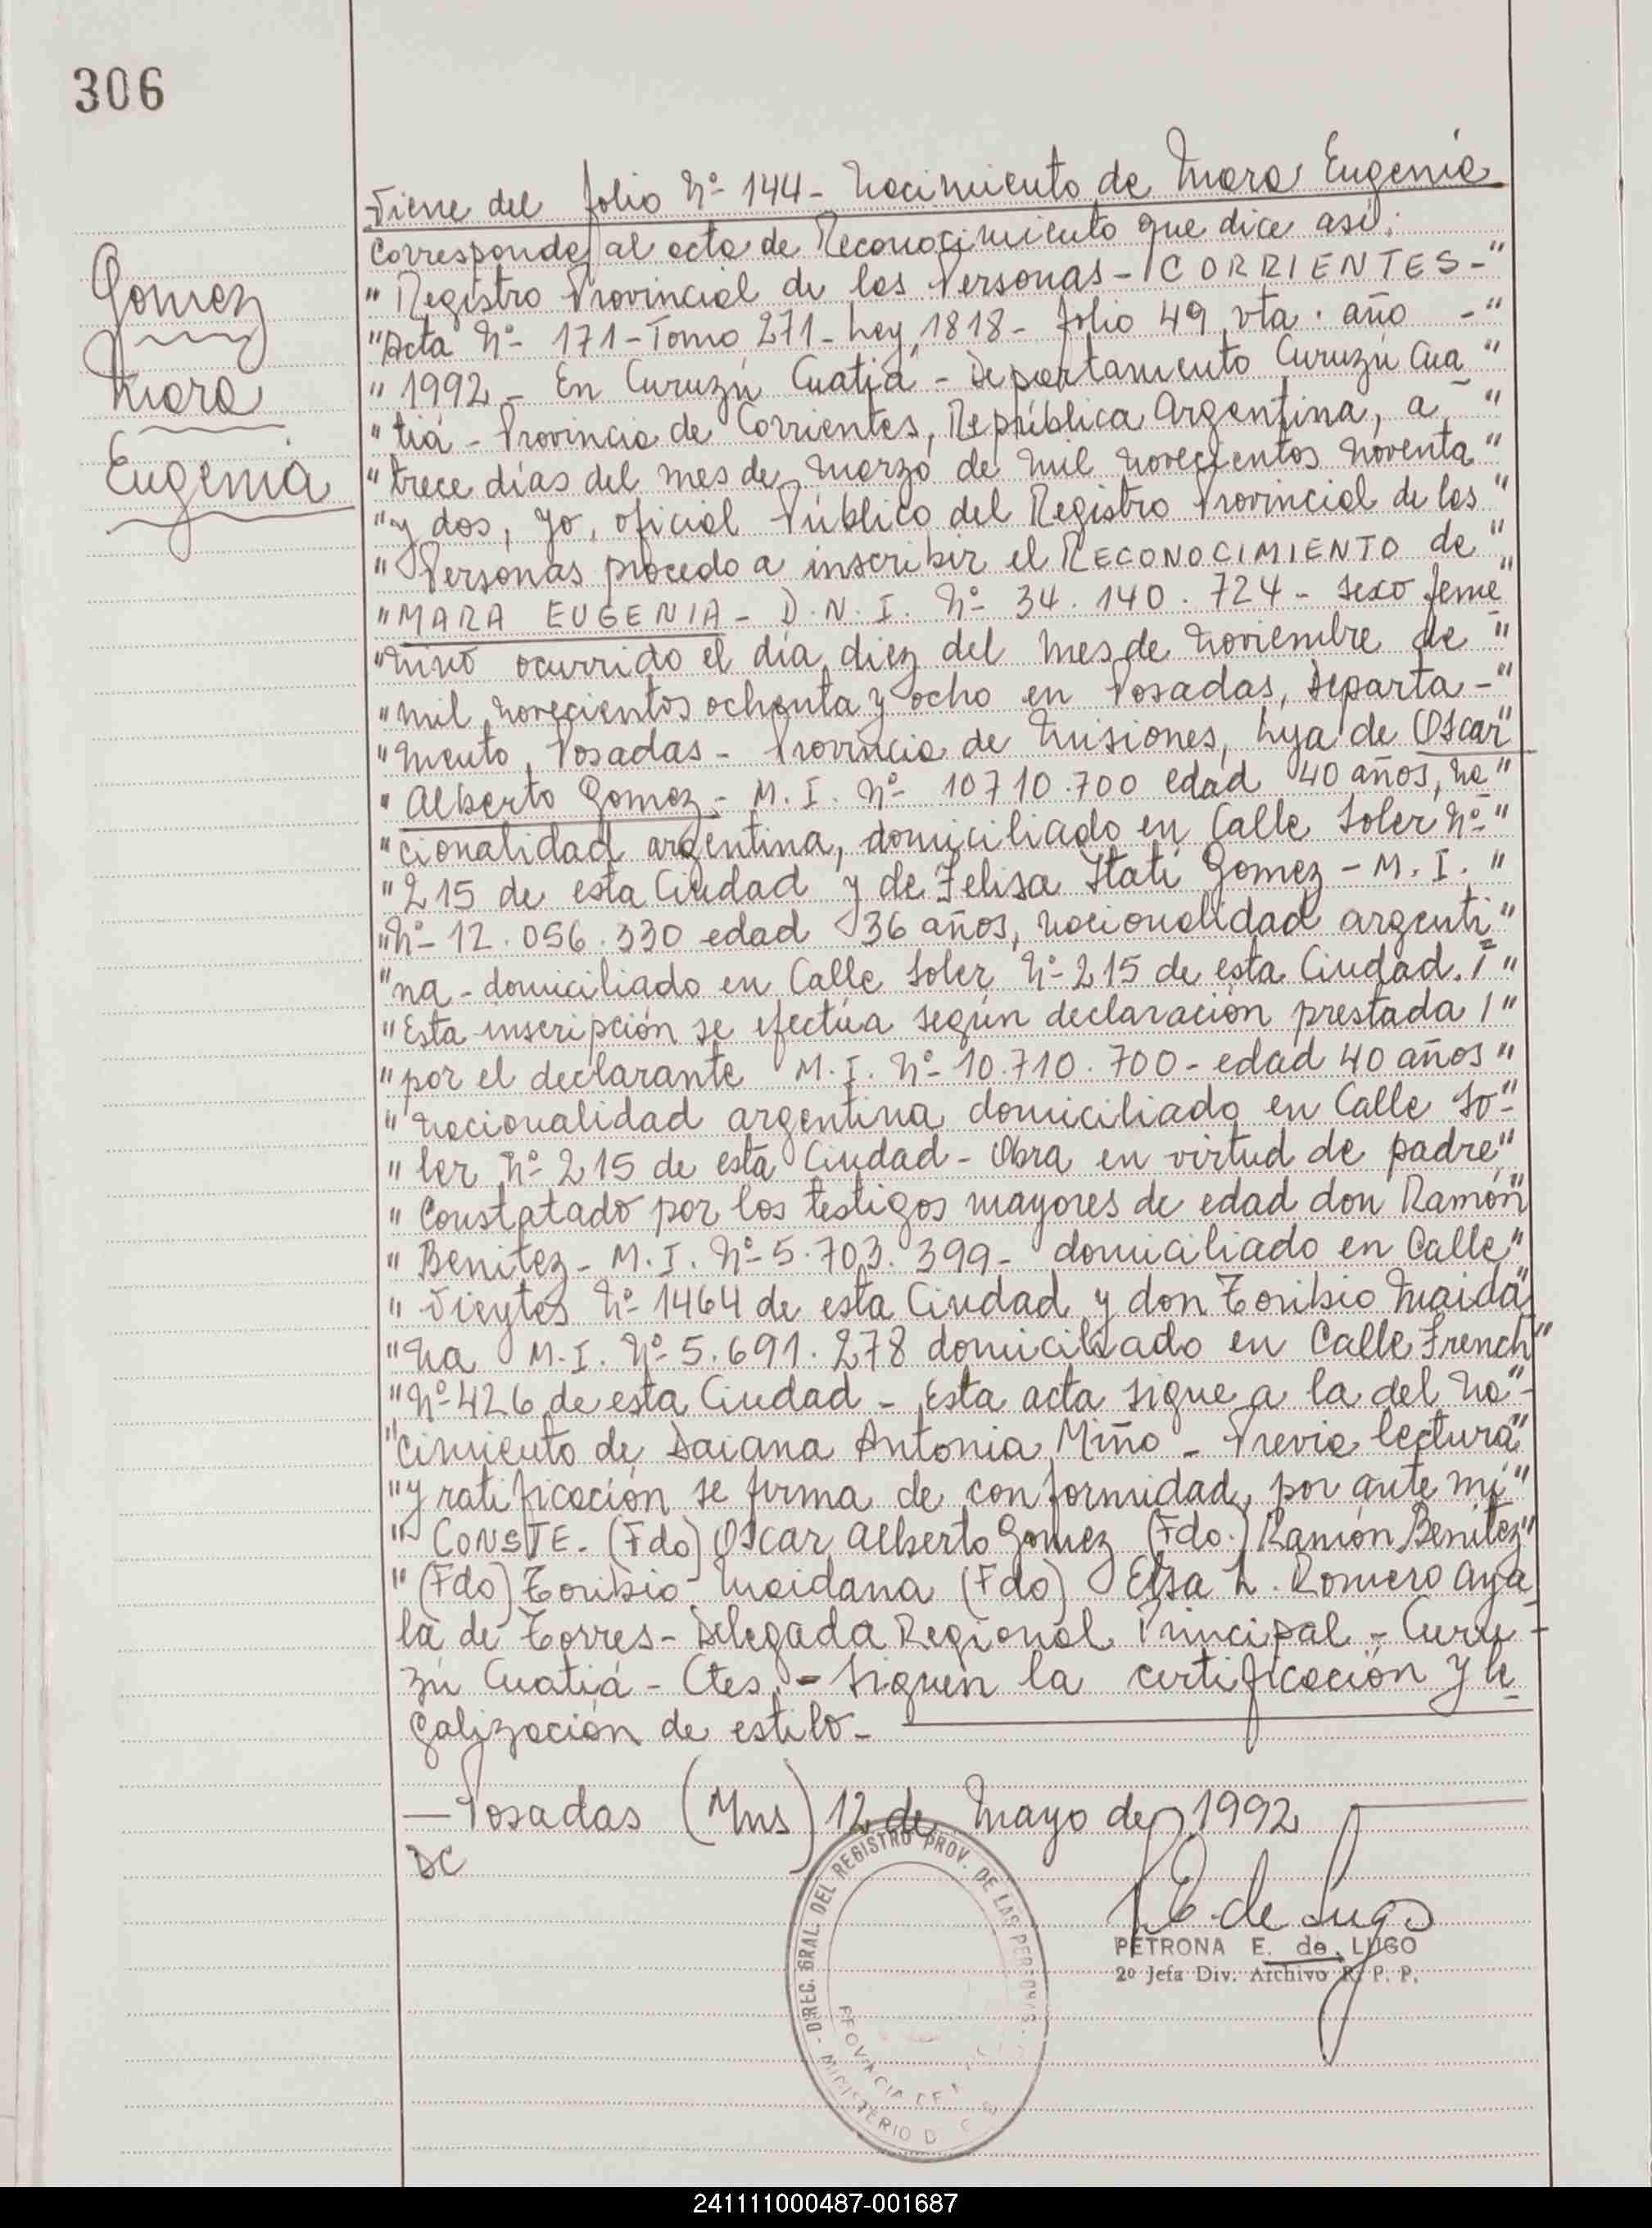 306
Viene del folio Nº 144 - Nacimiento de Mara Eugenia
Corresponde al acta de Reconocimiento que dice así:
" Registro Provincial de las Personas - CORRIENTES - "
"Acta Nº 171 - Tomo 271 - Ley 1818 - folio 49 vta. año - "
" 1992 - En Curuzú Cuatiá - Departamento Curuzú Cua "
" tiá - Provincia de Corrientes, República Argentina, a - "
" trece días del mes de Marzo de mil novecientos noventa "
" y dos, yo, oficial Público del Registro Provincial de las "
" Personas procedo a inscribir el RECONOCIMIENTO de "
" MARA EUGENIA - D.N.I. Nº 34.140.724 - sexo feme "
" nino ocurrido el día diez del mes de Noviembre de "
" mil novecientos ochenta y ocho en Posadas, Departa - "
" mento Posadas - Provincia de Misiones, hija de Oscar "
" Alberto Gomez - M.I. Nº 10710.700 edad 40 años, na "
" cionalidad argentina, domiciliado en Calle Soler Nº "
" 215 de esta Ciudad y de Felisa Itatí Gomez - M.I. "
" Nº 12.056.330 edad 36 años, nacionalidad argenti "
" na - domiciliado en Calle Soler Nº 215 de esta Ciudad. "
" Esta inscripción se efectúa según declaración prestada / "
" por el declarante M.I. Nº 10.710.700 - edad 40 años "
" nacionalidad argentina domiciliado en Calle So - "
" ler Nº 215 de esta Ciudad - Obra en virtud de padre "
" Constatado por los testigos mayores de edad don Ramón "
" Benitez - M.I. Nº 5.703.399 - domiciliado en Calle "
" Vieytes Nº 1464 de esta Ciudad y don Toribio Maida "
" na M.I. Nº 5.691.278 domiciliado en Calle French "
" Nº 426 de esta Ciudad - Esta acta sigue a la del na - "
" cimiento de Daiana Antonia Miño - Previa lectura "
" y ratificación se firma de conformidad, por ante mí "
" CONSTE. (Fdo) Oscar Alberto Gomez (Fdo.) Ramón Benitez "
" (Fdo) Toribio Maidana (Fdo) Elsa L. Romero Aya
la de Torres - Delegada Regional Principal - Curu -
zú Cuatiá - Ctes. - Siguen la certificación y le
galización de estilo -
— Posadas (Mns) 12 de Mayo de 1992
DC
Gomez
Mara
Eugenia
P E. de Lugo
PETRONA E. de LUGO
2º Jefa Div. Archivo R. P. P.
DIREC. GRAL. DEL REGISTRO PROV. DE LAS PERSONAS
PROVINCIA DE
MINISTERIO D
241111000487-001687